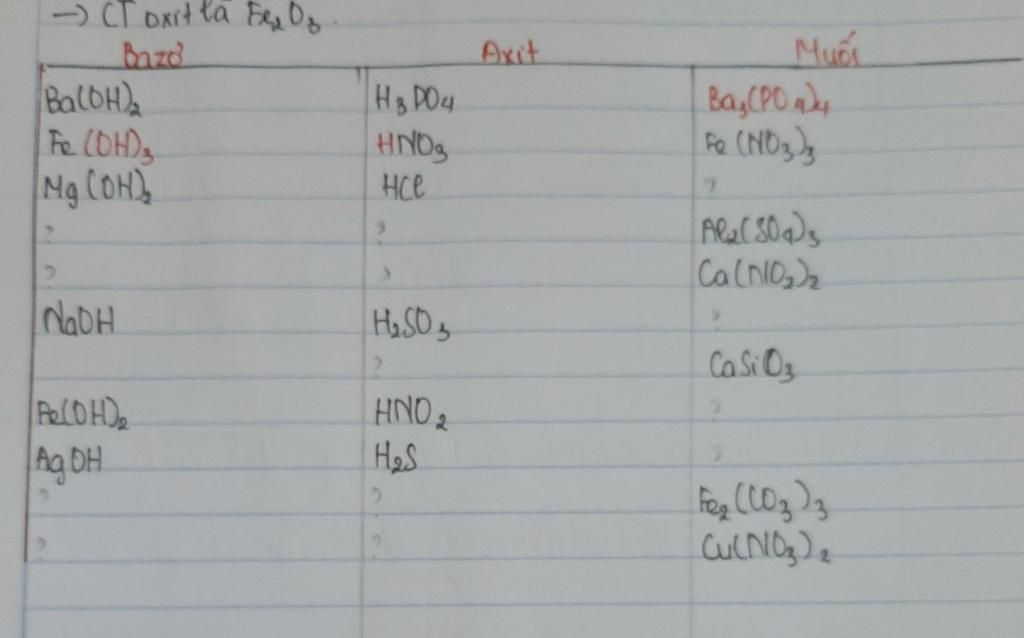 → CT oxit là Fe₂O₃.
Bazơ Axit Muối
Ba(OH)₂ H₃PO₄ Ba₃(PO₄)₄
Fe(OH)₃ HNO₃ Fe(NO₃)₃
Mg(OH)₂ HCl ?
? ? Al₂(SO₄)₃
? ? Ca(NO₂)₂
NaOH H₂SO₃ ?
? CaSiO₃
Fe(OH)₂ HNO₂ ?
AgOH H₂S ?
? ? Fe₂(CO₃)₃
? ? Cu(NO₃)₂